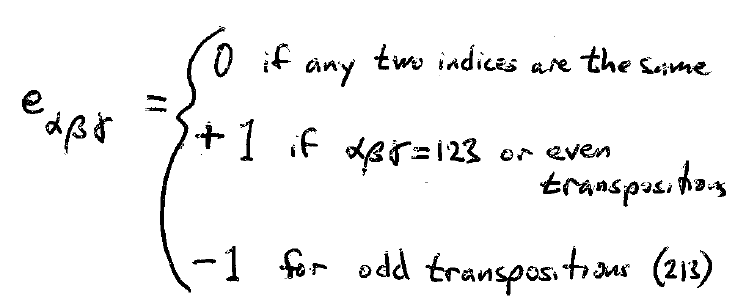 e_αβγ = { 0 if any two indices are the same
+1 if αβγ=123 or even
transpositions
-1 for odd transpositions (213)